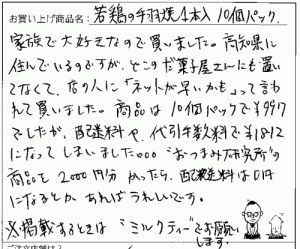 お買い上げ商品名：若鶏の手羽焼1本入 10個パック
家族で大好きなので買いました。高知県に
住んでいるのですが、どこのお菓子屋さんにも置い
てなくて、店の人に「ネットが早いかも」って言わ
れて買いました。商品は10個パックで￥997
でしたが、配送料や、代引手数料で￥1812
になってしまいました。。。"おつまみ研究所"の
商品を2000円分かったら、配送料は0円
になるとかあればうれしいです。
※掲載するときは"ミルクティー"でお願い
します。